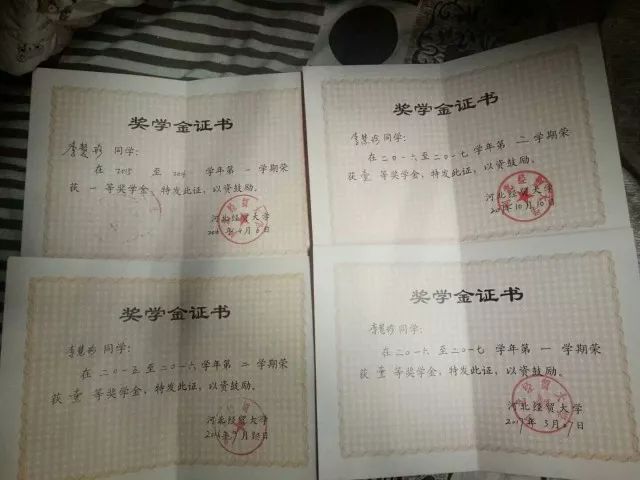 奖学金证书
李慧珍 同学:
在 2015 至 2016 学年第 一 学期荣
获 一 等奖学金，特发此证，以资鼓励。
河北经贸大学
2016年4月6日
奖学金证书
李慧珍 同学:
在二〇一六至二〇一七 学年第 二 学期荣
获 壹 等奖学金，特发此证，以资鼓励。
河北经贸大学
2017年10月10日
奖学金证书
李慧珍 同学:
在二〇一五至二〇一六学年第 二 学期荣
获 壹 等奖学金，特发此证，以资鼓励。
河北经贸大学
2016年9月30日
奖学金证书
李慧珍 同学:
在二〇一六至二〇一七 学年第 一 学期荣
获 壹 等奖学金，特发此证，以资鼓励。
河北经贸大学
2017年3月17日